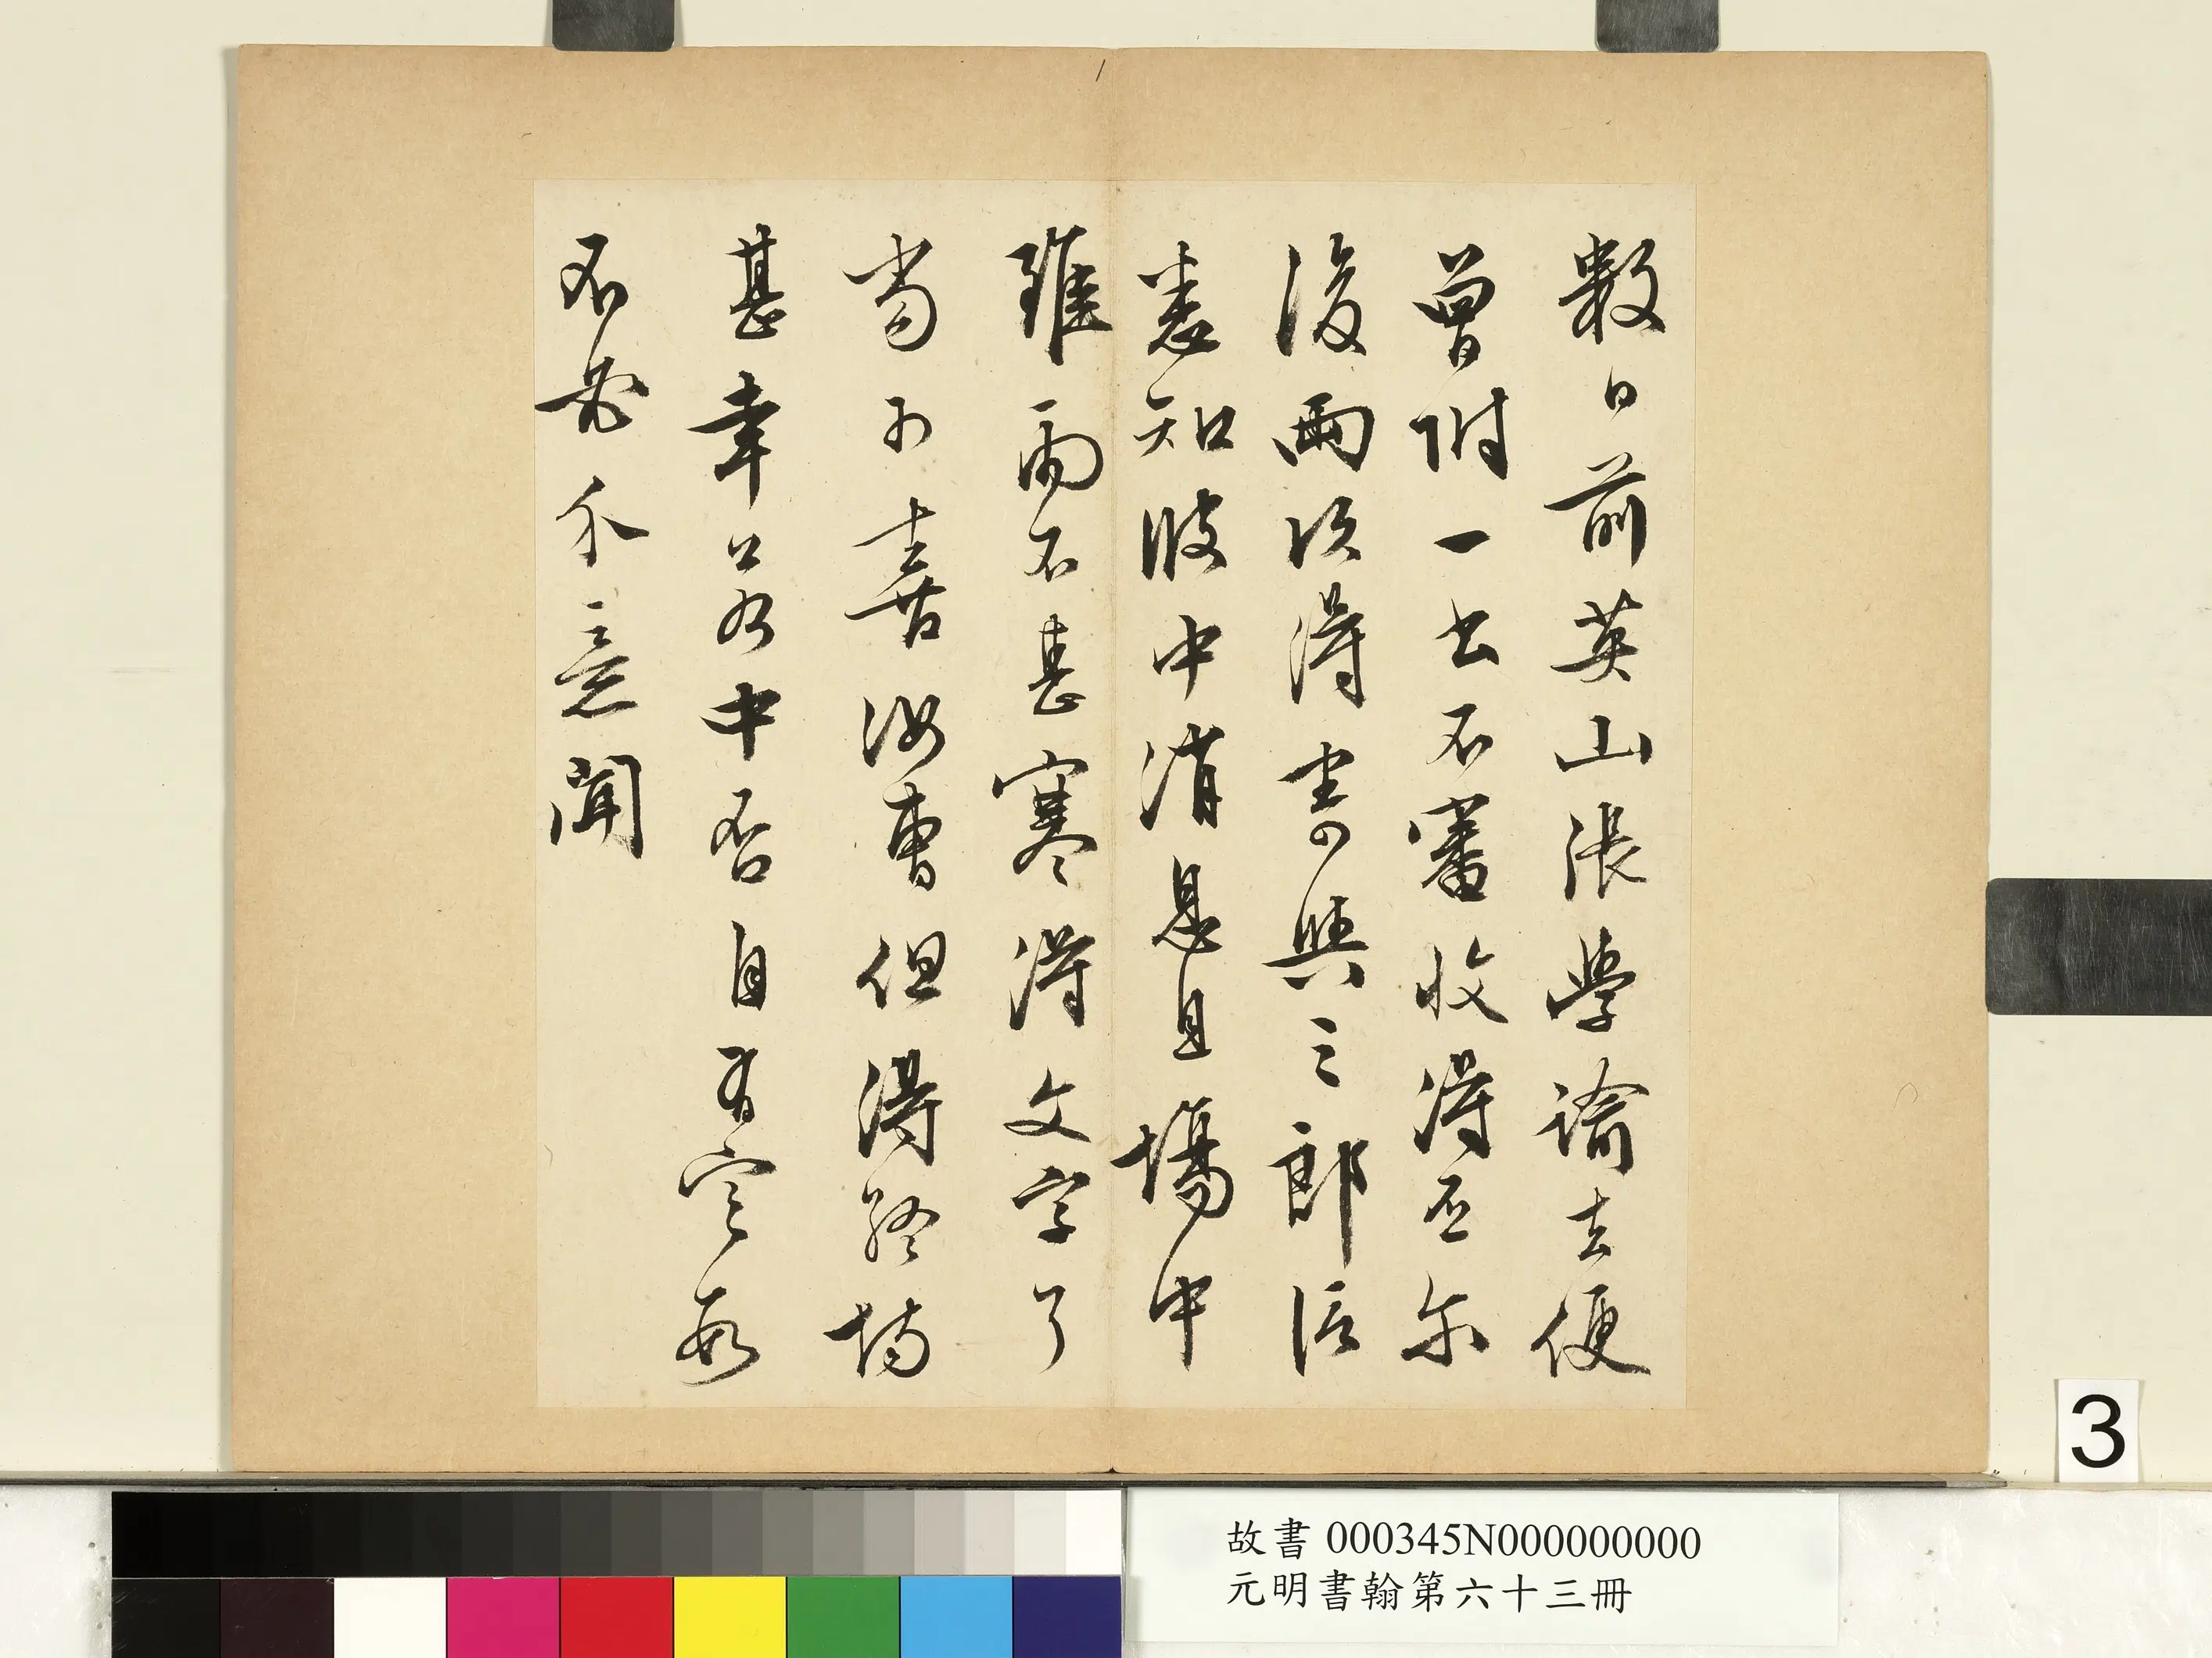 數日前英山張學諭去便
曾附一書不審收得否尔
後兩次得寄與三郎信
悉知彼中消息且場中
雖雨不甚寒得文字了
當可喜汝曹但得終場
甚幸若中否自有定數
不必介意聞
3
故書 000345N000000000
元明書翰第六十三冊